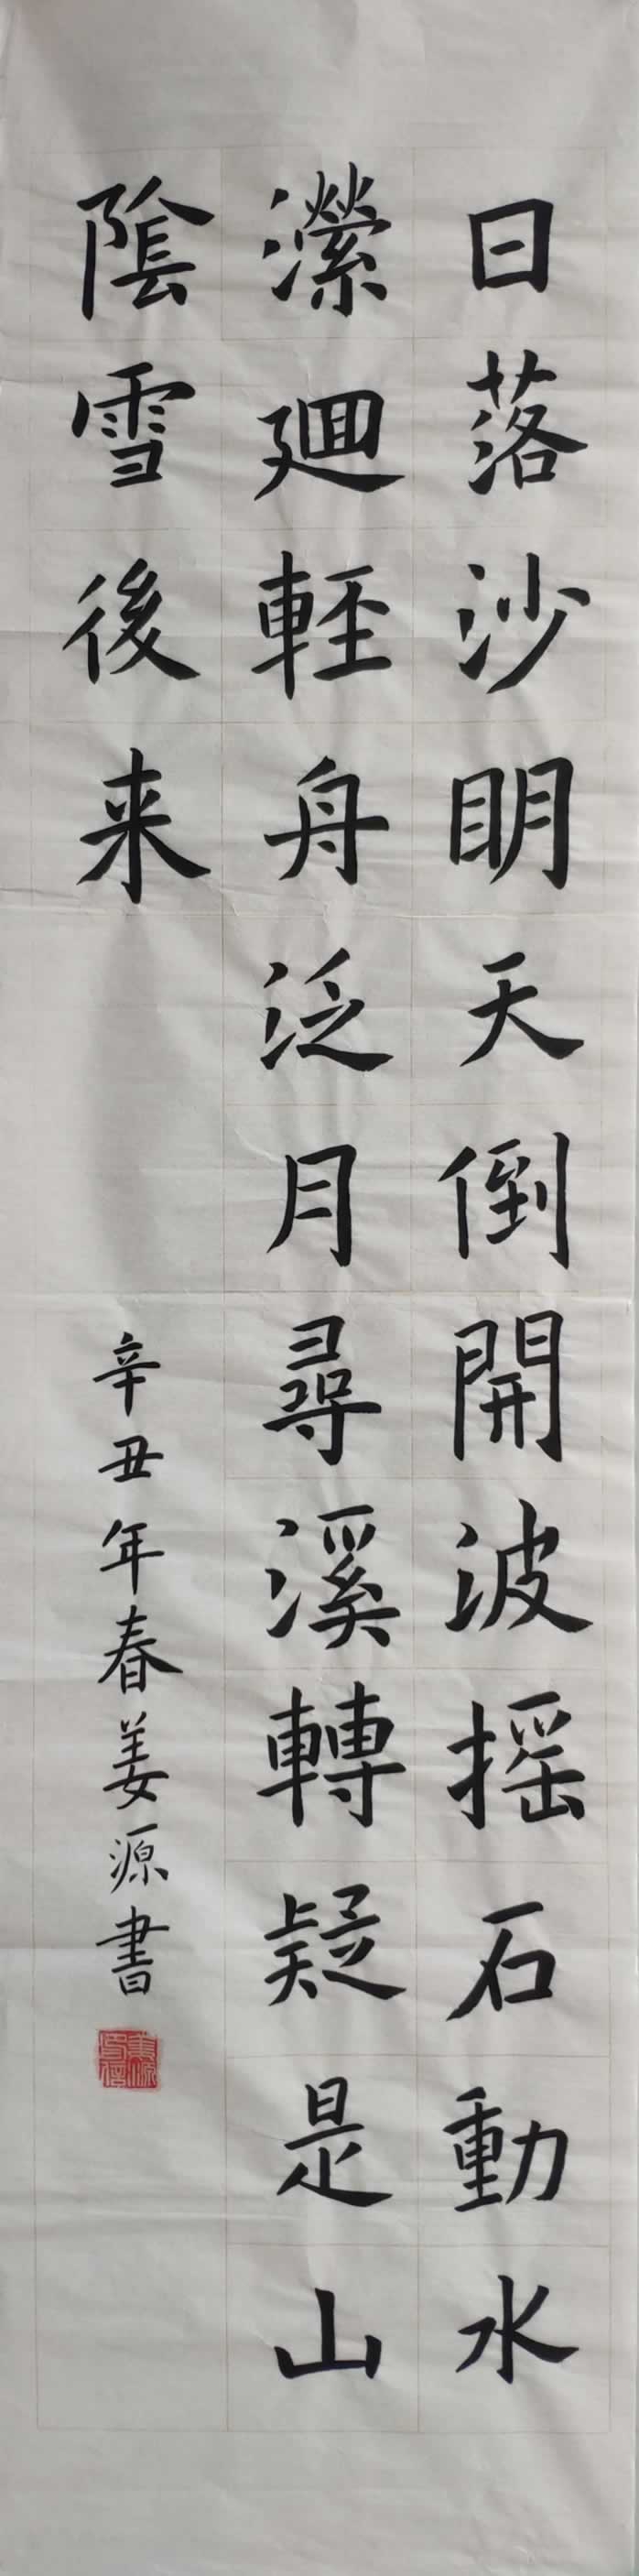 日落沙明天倒開波摇石動水
瀠廻輕舟泛月尋溪轉疑是山
隂雪後来
辛丑年春姜源書